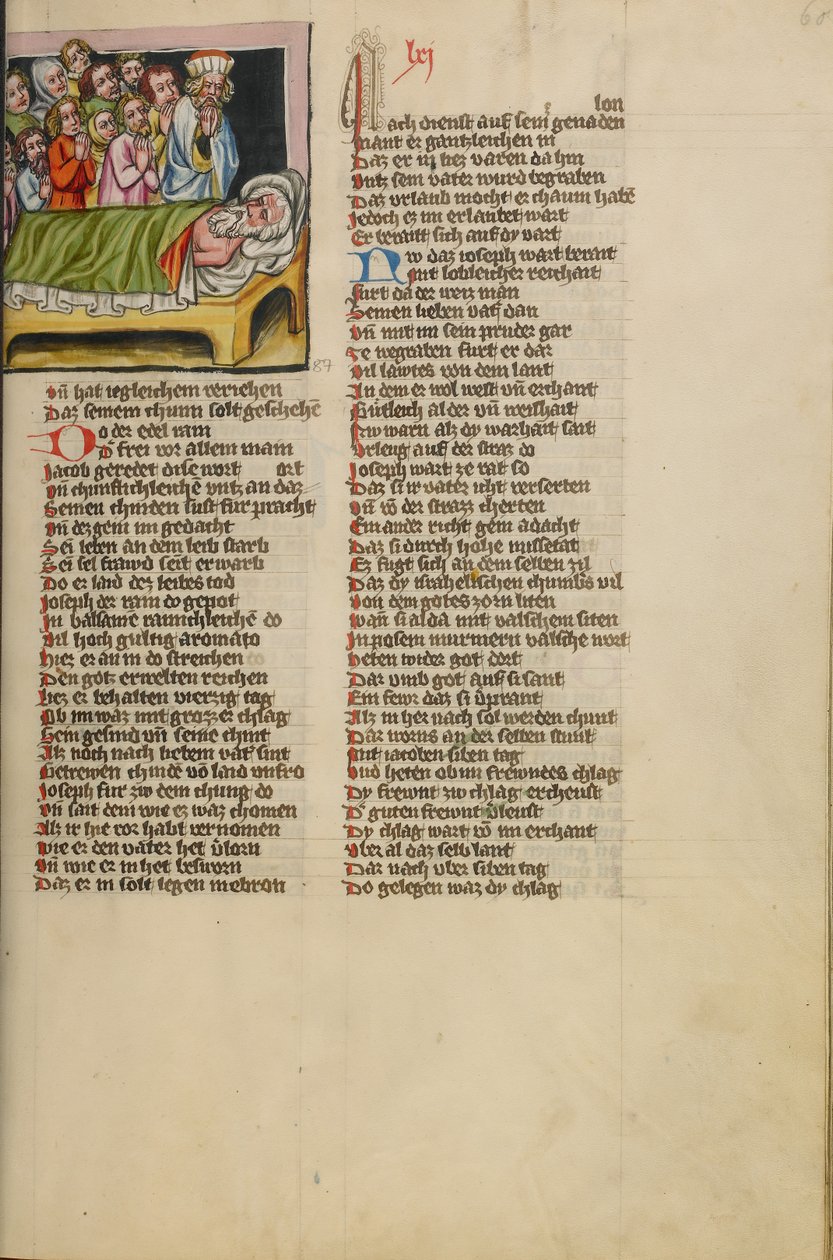 vñ hat itgleichem veriehen
Daz seinem chunn solt geschehē
Do der edel rain
Dˢ frei vor allem main
Jacob geredet dise wort
ort
vñ chunftichleichē vntz an daz
Seinen chinden sust für pracht
vñ dez gein im gedacht
Sei leben an dem leib starb
Sei sel frawd seit erwarb
Do er laid dez leibes tod
Joseph der rain do gepot
In balsame rainchleichē do
Vil hoch gultig aromato
Hiez er an in do streichen
Den gotz erwelten reichen
Liez er behalten vierzig tag
Ob im waz mit grozzer chlag
Sein gesind vñ seine chint
Alz noch nach liebem vatˢ sint
Getrewen chindē vō laid vnfro
Joseph fur zw dem chunig do
vñ sait dem wie ez waz chomen
Alz ir hie vor habt vernomen
wie er den vater het v̓lorn
vñ wie er in het besworn
Daz er in solt legen in ebron
87
60
lxj
lon
Nach dienst auf sein genaden
mant er gantzleichen in
Daz er in liez varen da hin
vntz sein vater wurd begraben
Daz vrlaub mocht er chaum habē
Jedoch ez im erlaubet wart
Er berait sich auf dy vart
Nw daz ioseph wart berait
Mit lobleicher reichait
furt da der weiz man
Seinen lieben vatˢ dan
vñ mit im sein pruder gar
Ze wegraben furt er dar
Vil lawtes von dem lant
In dem er wol west vñ erchant
Gutleich alder vñ weishait
Nw warn alz dy warhait sait
vrleug auf der straz do
Joseph wart ze rat so
Daz si ir vater icht verserten
vñ vō der strazz cherten
Ein ander richt gein adacht
Daz si durch hohe missetat
Ez fugt sich an dem selben zil
Daz dy israhelischen chumbˢs vil
Von dem gotes zorn liten
Wañ si alda mit valschem siten
In posem murmern valsche wort
heten wider got dort
Dar vmb got auf si sant
Ein fewr daz si v̓prant
Alz in her nach sol werden chunt
Dar worns an der selben stunt
Mit iacoben siben tag
Vnd heten ob im frewndes chlag
Dy frewnt zw chlag ercheust
Dˢ guten frewnt v̓leust
Dy chlag wart vō im erchant
Vber al daz selb lant
Dar nach vber siben tag
Do gelegen waz dy chlag